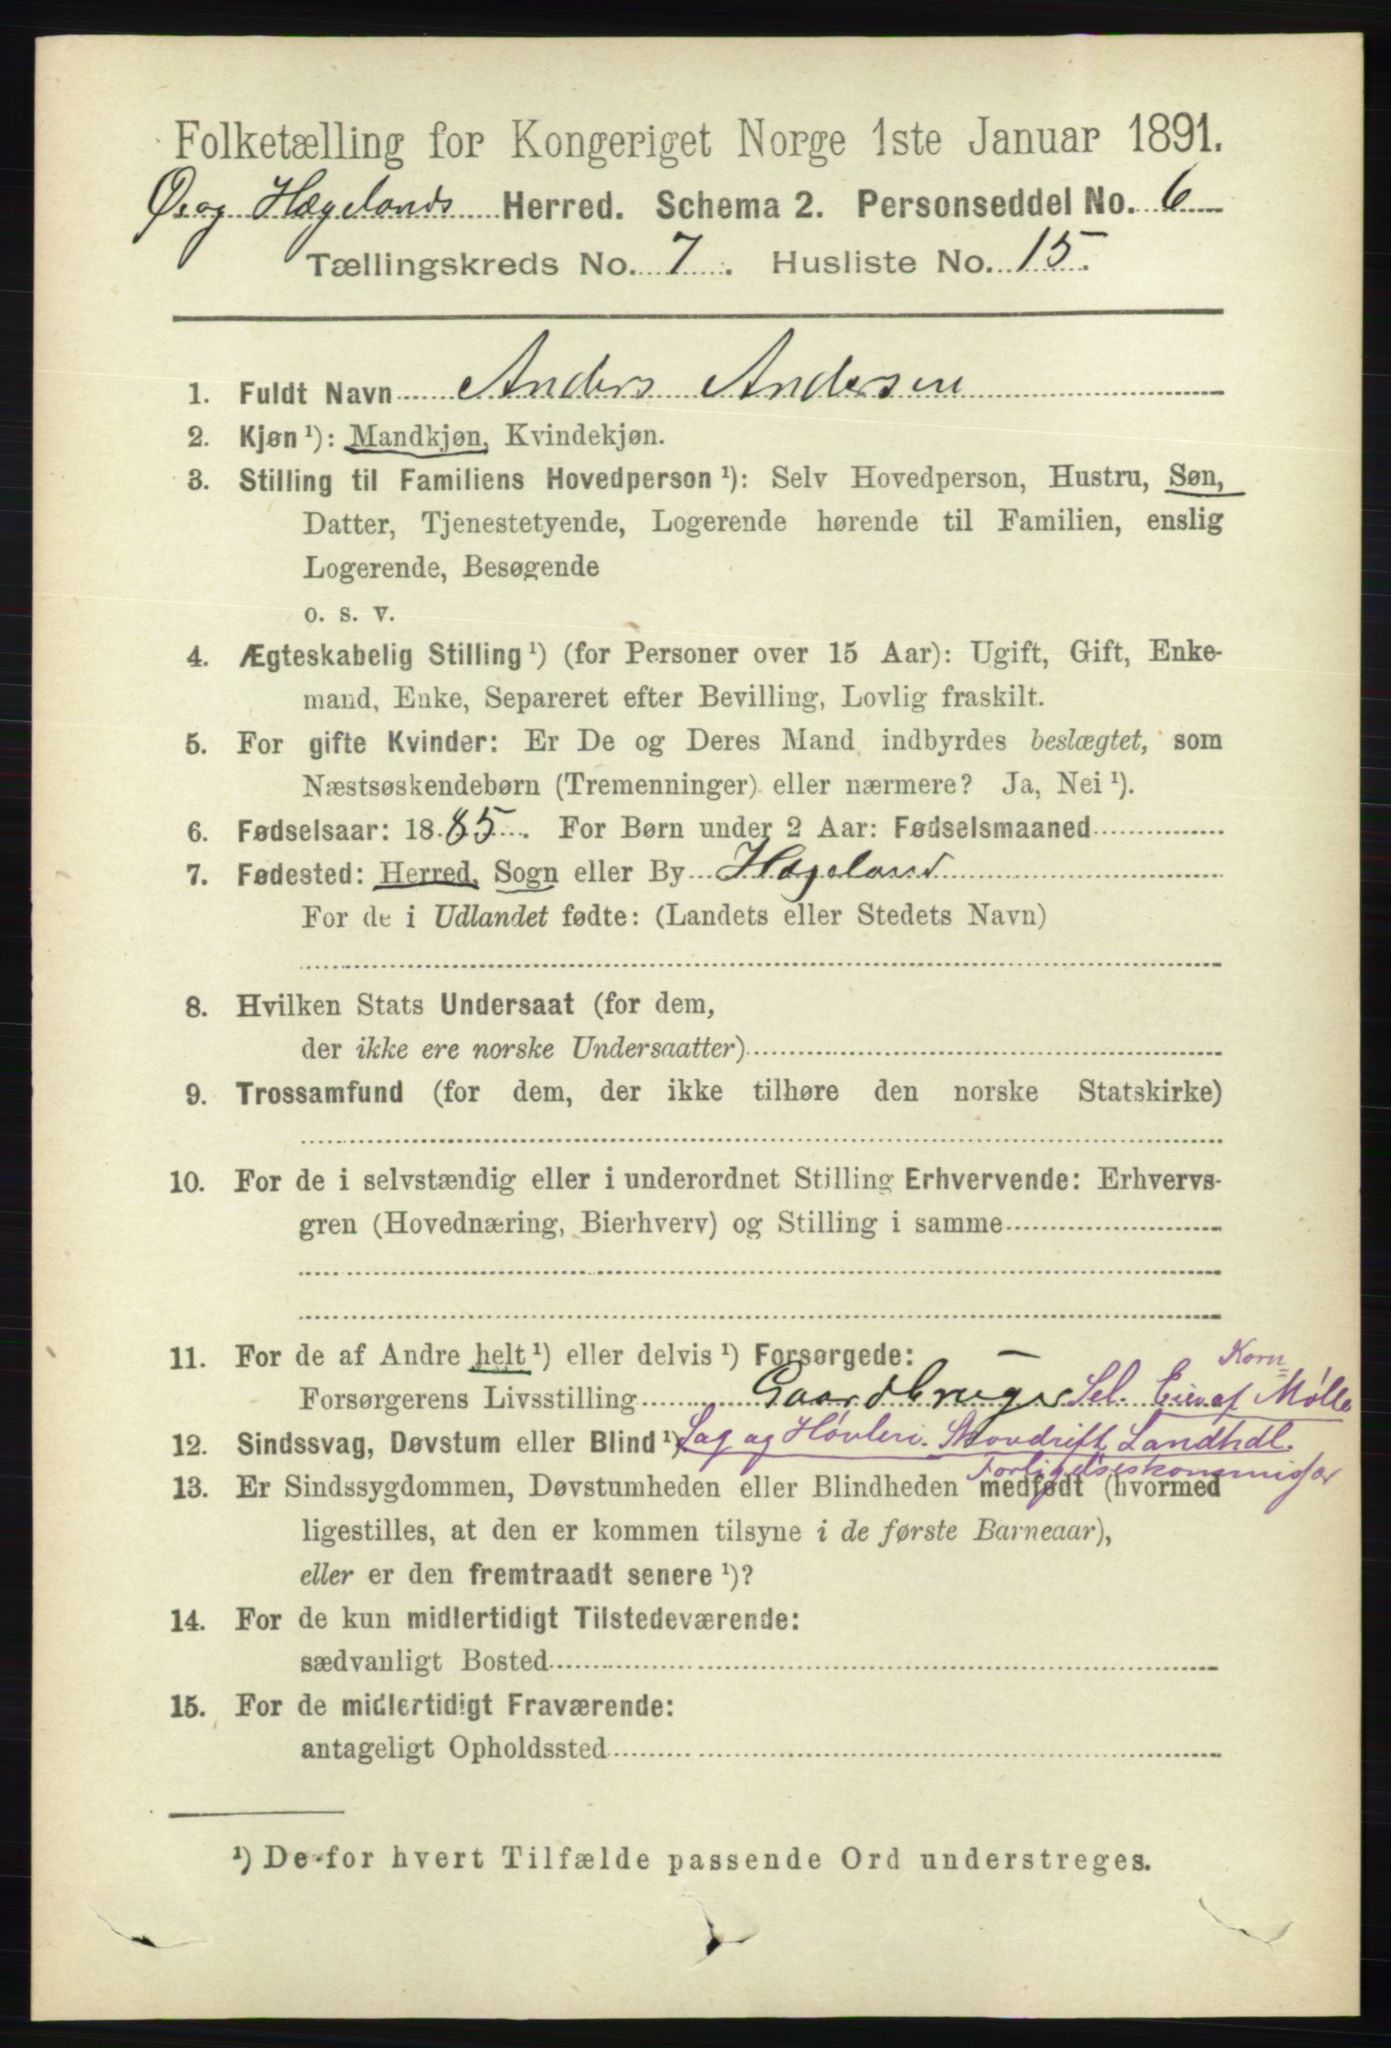 Folketælling for Kongeriget Norge 1ste Januar 1891.
Ø. og Hægelands Herred. Schema 2. Personseddel No. 6
Tællingskreds No. 7. Husliste No. 15.
1. Fuldt Navn Anders Andersen
2. Kjøn ¹): Mandkjøn, Kvindekjøn.
3. Stilling til Familiens Hovedperson ¹): Selv Hovedperson, Hustru, Søn,
Datter, Tjenestetyende, Logerende hørende til Familien, enslig
Logerende, Besøgende
o. s. v.
4. Ægteskabelig Stilling ¹) (for Personer over 15 Aar): Ugift, Gift, Enke-
mand, Enke, Separeret efter Bevilling, Lovlig fraskilt.
5. For gifte Kvinder: Er De og Deres Mand indbyrdes beslægtet, som
Næstsøskendebørn (Tremenninger) eller nærmere? Ja, Nei ¹).
6. Fødselsaar: 1885. For Børn under 2 Aar: Fødselsmaaned
7. Fødested: Herred, Sogn eller By Hægeland
For de i Udlandet fødte: (Landets eller Stedets Navn)
8. Hvilken Stats Undersaat (for dem,
der ikke ere norske Undersaatter)
9. Trossamfund (for dem, der ikke tilhøre den norske Statskirke)
10. For de i selvstændig eller i underordnet Stilling Erhvervende: Erhvervs-
gren (Hovednæring, Bierhverv) og Stilling i samme
11. For de af Andre helt ¹) eller delvis ¹) Forsørgede: — Korn=
Forsørgerens Livsstilling Gaardbruger Sel. Eier af Mølle
12. Sindssvag, Døvstum eller Blind ¹) Sag og Høvleri. Skovdrift Landhdl.
Forligelseskommissær
13. Er Sindssygdommen, Døvstumheden eller Blindheden medfødt (hvormed
ligestilles, at den er kommen tilsyne i de første Barneaar),
eller er den fremtraadt senere ¹)?
14. For de kun midlertidigt Tilstedeværende:
sædvanligt Bosted
15. For de midlertidigt Fraværende:
antageligt Opholdssted
¹) De for hvert Tilfælde passende Ord understreges.